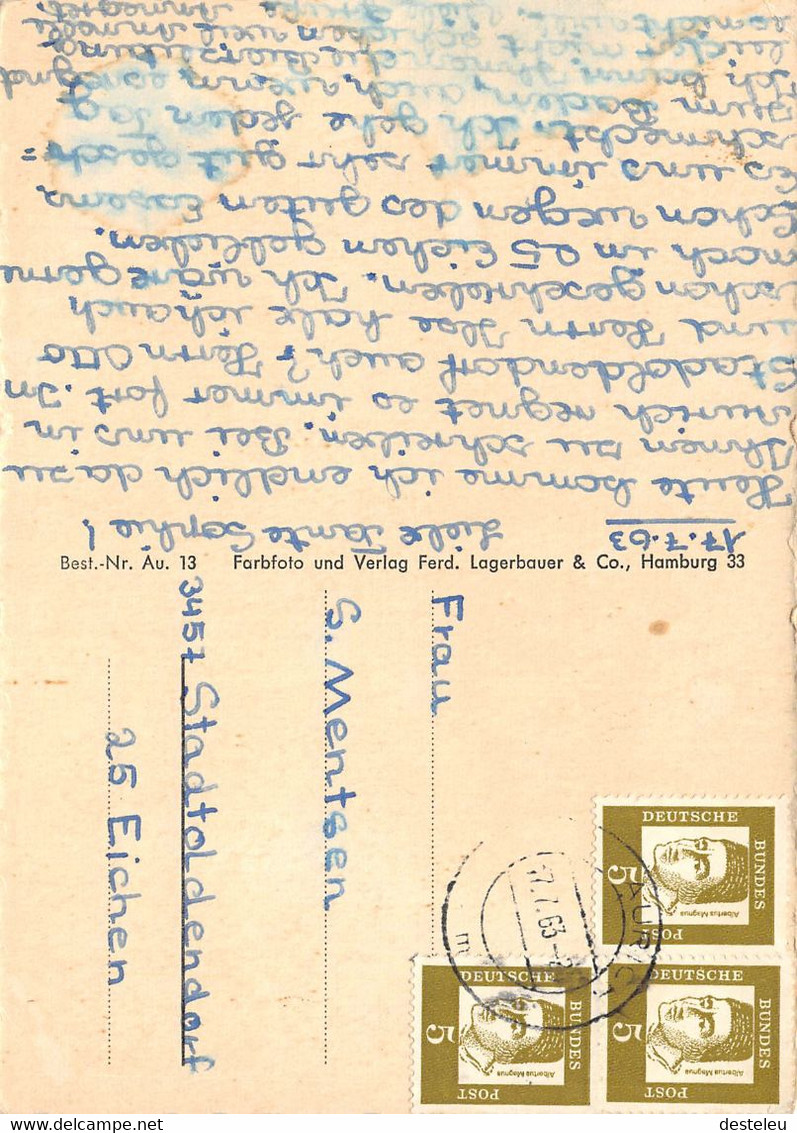 17.7.63
Liebe Tante Sophie!
Heute komme ich endlich dazu
Ihnen zu schreiben. Bei uns in
Aurich regnet es immer fort. In
Stadoldendorf auch? Herrn Otto
und Herrn Ilse habe ich auch
schon geschrieben. Ich wäre gerne
noch im 25 Eichen geblieben.
Schon wegen des guten Essens
es uns immer sehr gut gesch=
schmeckt. Ich gehe jeden Tag
zum Baden, auch wenn es regnet
Ich kann Ihnen die
leider nicht schicken weil
Best.-Nr. Au. 13
Farbfoto und Verlag Ferd. Lagerbauer & Co., Hamburg 33
Frau
S. Mentsen
3457 Stadtoldendorf
25 Eichen
DEUTSCHE
BUNDES
POST
5
Albertus Magnus
DEUTSCHE
BUNDES
POST
5
Albertus Magnus
DEUTSCHE
BUNDES
POST
5
Albertus Magnus
AURICH
7.63
desteleu